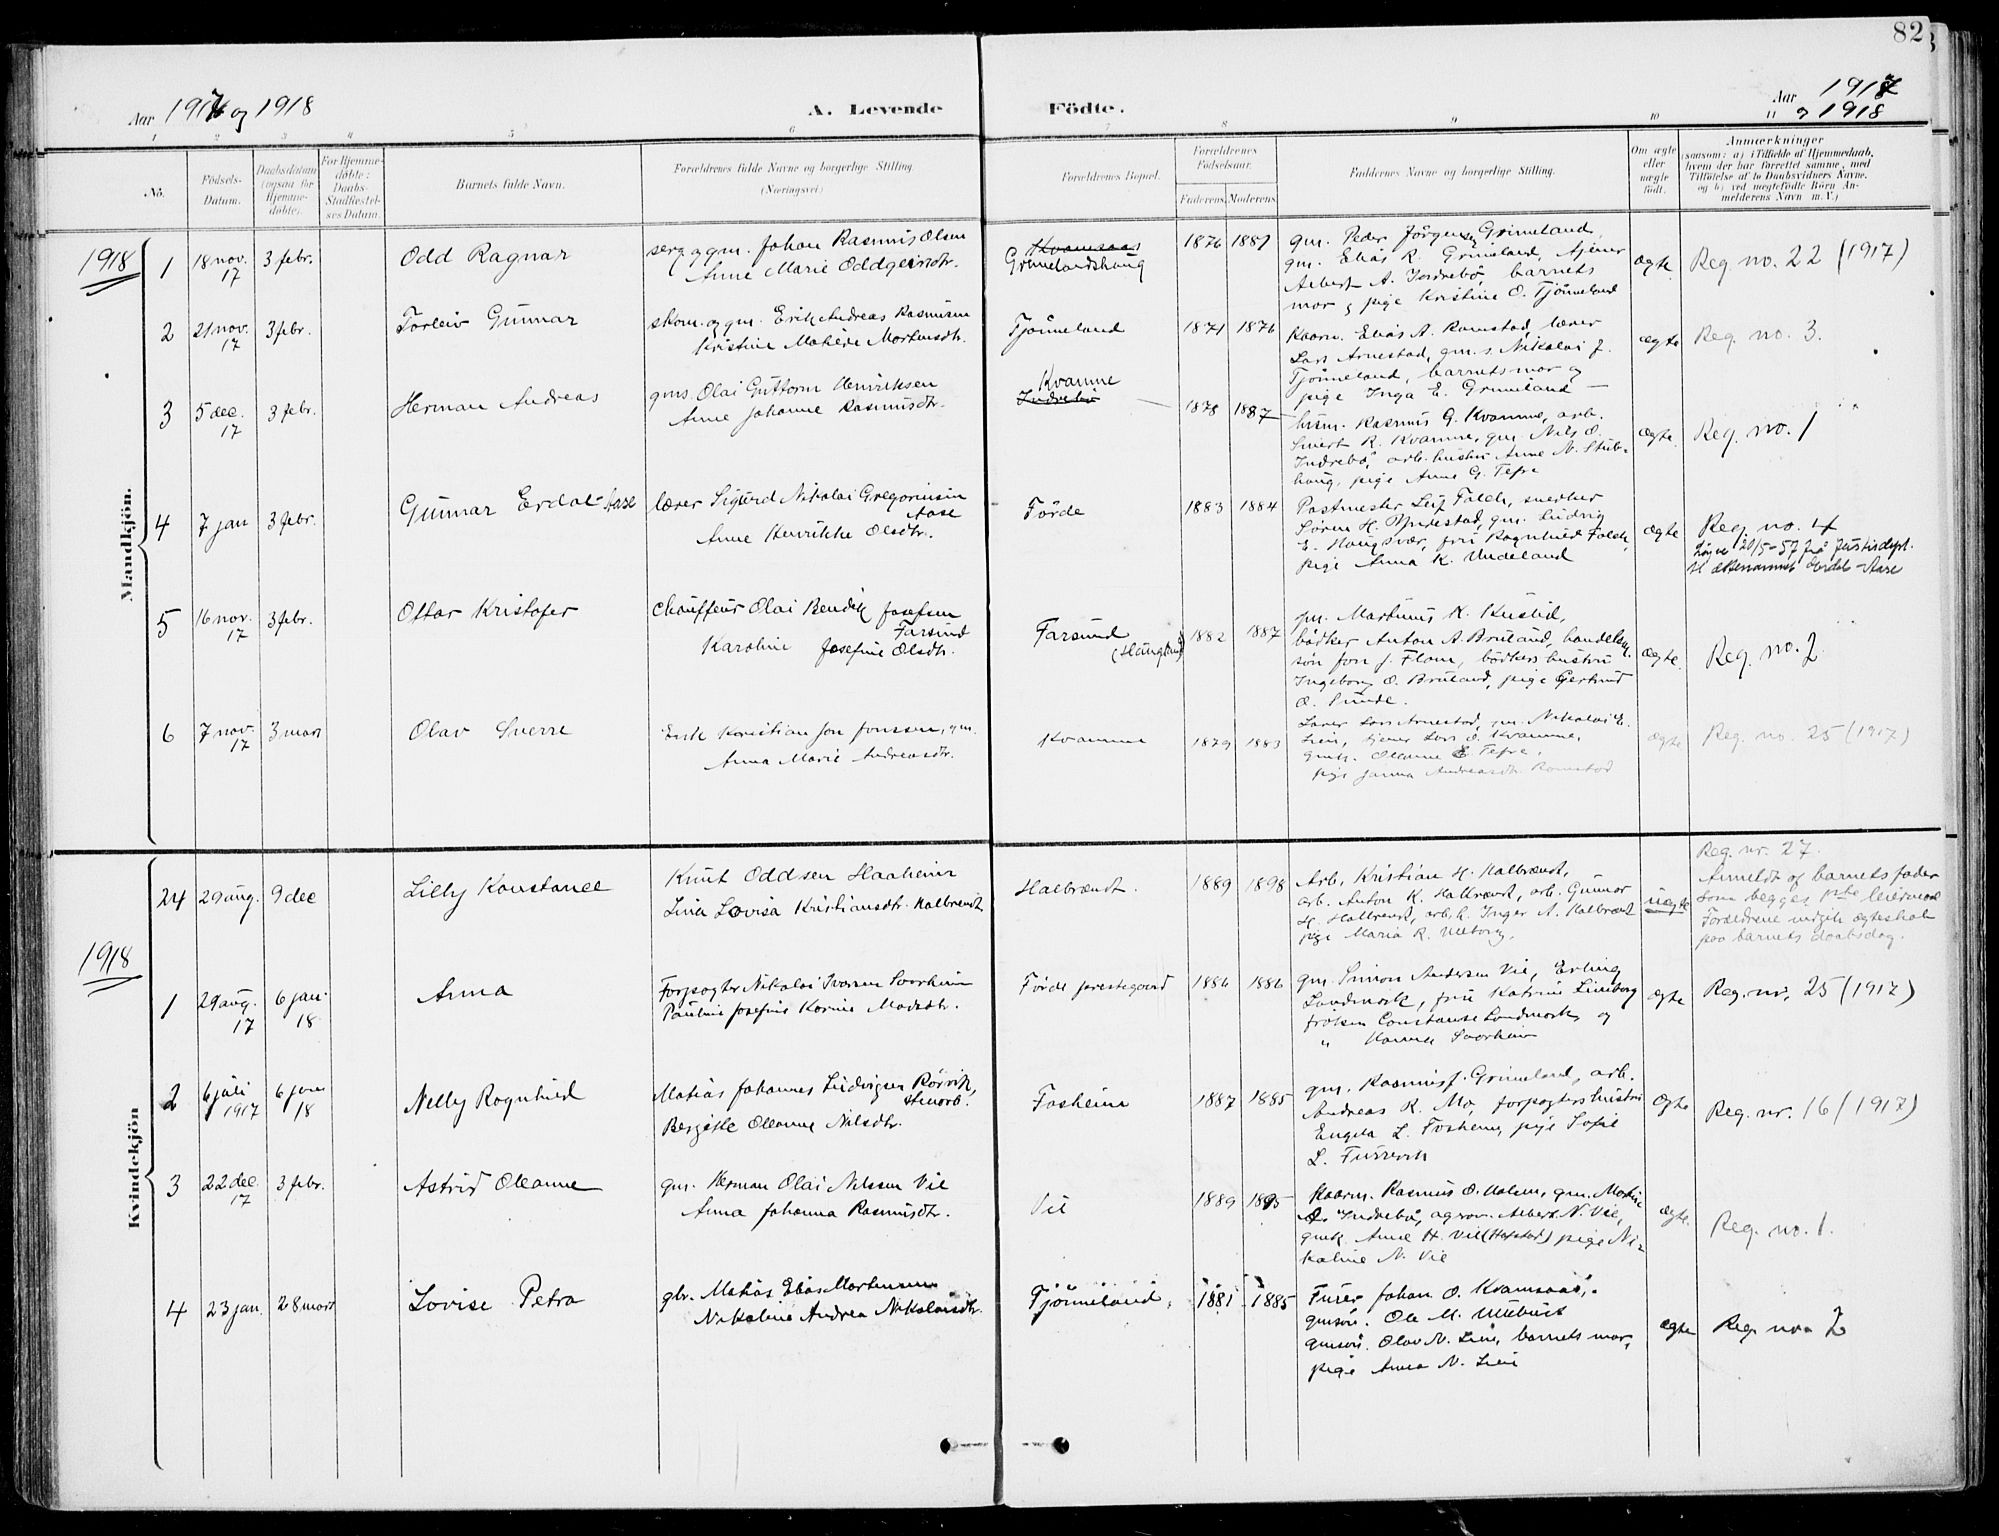 82
Aar 1917 og 1918
A. Levende
Födte.
Aar 1917
og 1918
1 2 3 4 5 6 7 8 9 10 11
No.
Födsels-
Datum.
Daabsdatum
(ogsaa for
Hjemme-
döbte).
For Hjemme-
döbte:
Daabs-
Stadfæstel-
ses Datum.
Barnets fulde Navn.
Forældrenes fulde Navne og borgerlige Stilling.
(Næringsvei)
Forældrenes Bopæl.
Forældrenes
Födselsaar.
Faderens. Moderens.
Faddernes Navne og borgerlige Stilling.
Om ægte
eller
uægte
födt.
Anmærkninger
(saasom: a) i Tilfælde af Hjemmedaab,
hvem der har forrettet samme, med
Tilföielse af to Daabsvidners Navne.
og b) ved uægtefödte Börn An-
melderens Navn m. V.)
Mandkjön.
1918
1 18 nov. 17 3 febr. Odd Ragnar
gm. Johan Rasmus Olsen
Anne Marie Oddgeirsdtr.
Kvamsaas
Grimelandshaug
1876 1881
gm. Peder Jörgensen Grimeland,
gm. Elias R. Grimeland, tjener
Albert A. Indrebö, barnets
mor og pige Kristine O. Tjönneland
ægte Reg. no. 22 (1917)
2 21 nov. 17 3 febr. Torleiv Gunnar
skom. og gm. Erik Andreas Rasmusen
Kristine Matilde Mortensdtr.
Tjönneland
1871 1876
Kaarm. Elias A. Ramstad, lærer
Lars Arnestad, gm. s. Nikolai J.
Tjönneland, barnets mor og
pige Inga E. Grimeland
ægte Reg. no. 3.
3 5 dec. 17 3 febr. Herman Andreas
gms. Olai Guttorm Henriksen
Anne Johanne Rasmusdtr.
Kvamme
Indrebö
1878 1887
husm. Rasmus G. Kvamme, arb.
Sivert R. Kvamme, gm. Nils O.
Indrebö, arb. hustru Anne N. Stub-
haug, pige Anne G. Tefre
ægte. Reg. no. 1
4 7 jan 3 febr. Gunnar Erdal-Aase
lærer Sigurd Nikolai Gregoriusen
Aase
Anne Henrikke Olsdtr.
Förde
1883 1884
Postmester Leif Falch, snedker
Sören H. gm. Ludvig
E. Haugsvær, fru Ragnhild Falch,
pige Anna K. Undeland
ægte Reg. no. 4
20/5-57 frå Justisdept.
Erdal-Aase
5 16 nov. 17 3 febr. Ottar Kristofer
Chauffeur Olai Bendik Josefsen
Farsund
Karoline Josefine Olsdtr.
Farsund
1882 1887
gm. Martinus K.
bödker Anton A. Bruland, handelsm.
sön Jon J. Flam, bödkers hustru
Ingeborg O. Bruland, pige Gertrud
O. Sunde.
ægte. Reg. no. 2
6 7 nov. 17 3 mars Olav Sverre
Erik Kristian Jon Jonssen, gm.
Anna Marie Andreasdtr.
Kvamme
1879 1883
Lærer Lars Arnestad, gm. Nikolai E.
Lien, tjener Lars O. Kvamme,
gmk. Oleanne E Tefre,
pige Janna Andreasdtr. Ramstad
ægte Reg. no. 25 (1917)
Kvindekjön
24 29 aug. 9 dec Lilly Konstance
Knut Oddsen Haaheim
Lina Lovisa Kristiansdtr. Halbrendt
Halbrændt.
1889 1898
Arb. Kristian H. Halbrændt,
arb. Anton K. Halbrændt, arb. Gunnar
H. Halbrendt, arb. k. Inger A. Halbrændt
pige Maria R.
uægte
Reg. nr. 27.
Anmeldt af barnets fader
som begges 1ste leiermaal
Forældrene indgik ægteskab
paa barnets daabsdag.
1918
1 29 aug. 17 6 jan. 18 Anna
Forpagter Nikolai Iversen Savrheim
Pauline Josefine Korine Madsdtr.
Förde prestegaard
1886 1886
gm. Simon Andersen Vie, Erling
Landmark, fru Katrine Limborg
fröken Constanse Landmark, og
" Hanna Savrheim
ægte Reg. nr. 25 (1917)
2 6 juli 1917 6 jan 18 Nelly Ragnhild
Matias Johannes Ludvigsen Rörvik,
Bergitte Oleanne Nilsdtr.
Fosheim
1887 1885
gm. Rasmus J. Grimeland, arb.
Andreas R. Mo, forpagters hustru
Engela L. Fosheim, pige Sofie
L.
ægte Reg. nr. 16 (1917)
3 22 dec. 17 3 febr. Astrid Oleanne
gm. Herman Olai Nilssen Vie
Anna Johanna Rasmusdtr.
Vie
1889 1895
Kaarm. Rasmus O. Halem, gm.
O. Indrebö, agron. Albert N. Vie,
gmk. Anne H. Vie (Hafstad) pige Ni-
koline N. Vie
ægte. Reg. no. 1.
4 23 jan. 28 mars Lovise Petra
gbr. Matias Elias Mortensen
Nikoline Andrea Nikolaisdtr.
Tjönneland,
1881 1885
Furer Johan O. Kvamsaas,
gmsön. Ole M.
gmsön. Olav N. Lien, barnets mor,
pige Anna N. Lien
ægte Reg. no. 2